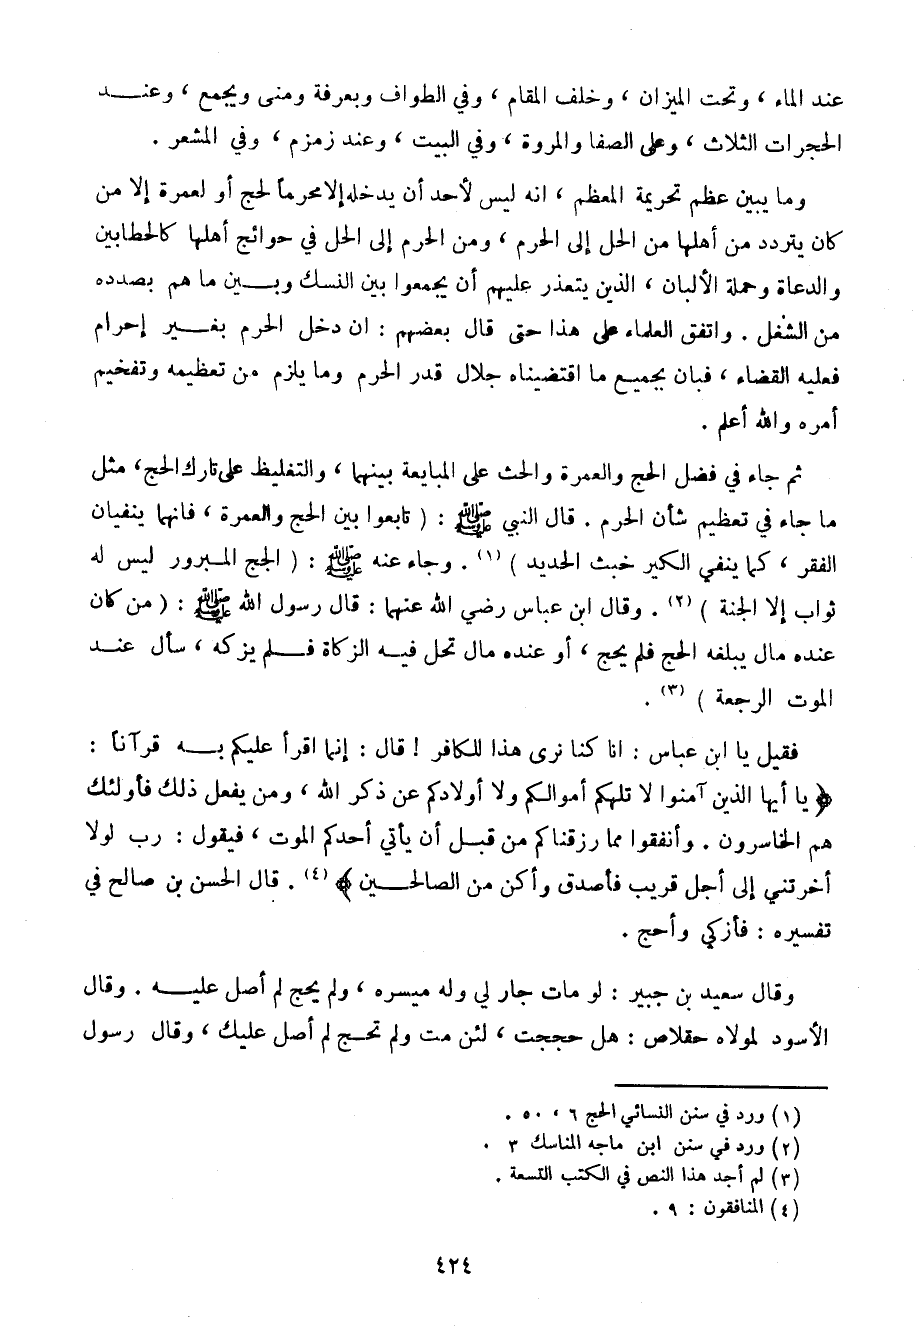 عند الماء ، وتحت الميزان ، وخلف المقام ، وفي الطواف وبعرفة ومنى وبجمع ، وعنـــد
الحجرات الثلاث ، وعلى الصفا والمروة ، وفي البيت ، وعند زمزم ، وفي المشعر .
وما يبين عظم تحريمة المعظم ، انه ليس لأحد أن يدخله إلا محرماً لحج أو لعمرة إلا من
كان يتردد من أهلها من الحل إلى الحرم ، ومن الحرم إلى الحل في حوائج أهلها كالحطابين
والدعاة وحملة الألبان ، الذين يتعذر عليهم أن يجمعوا بين النسك وبـــين ما هم بصدده
من الشغل . واتفق العلماء على هذا حتى قال بعضهم : ان دخل الحرم بغـــير إحرام
فعليه القضاء ، فبان بجميع ما اقتضيناه جلال قدر الحرم وما يلزم من تعظيمه وتفخيم
أمره والله أعلم .
ثم جاء في فضل الحج والعمرة والحث على المبايعة بينهما ، والتغليظ على تارك الحج ، مثل
ما جاء في تعظيم شأن الحرم . قال النبي ﷺ : ( تابعوا بين الحج والعمرة ، فانهما ينفيان
الفقر ، كما ينفي الكير خبث الحديد ) (١) . وجاء عنه ﷺ : ( الحج المـبرور ليس له
ثواب إلا الجنة ) (٢) . وقال ابن عباس رضي الله عنهما : قال رسول الله ﷺ : ( من كان
عنده مال يبلغه الحج فلم يحج ، أو عنده مال تحل فيـه الزكاة فـــلم يزكه ، سأل عنــد
الموت الرجعة ) (٣) .
فقيل يا ابن عباس : انا كنا نرى هذا للكافر ! قال : إنما اقرأ عليكم بـــه قرآناً :
﴿ يا أيها الذين آمنوا لا تلهكم أموالكم ولا أولادكم عن ذكر الله ، ومن يفعل ذلك فأولئك
هم الخاسرون . وأنفقوا مما رزقناكم من قبـل أن يأتي أحدكم الموت ، فيقول : رب لولا
أخرتني إلى أجل قريب فأصدق وأكن من الصالحـــين ﴾ (٤) . قال الحسن بن صالح في
تفسيره : فأزكي وأحج .
وقال سعيد بن جبير : لو مات جار لي وله ميسره ، ولم يحج لم أصل عليـــه . وقال
الأسود لمولاه حقلاص : هل حججت ، لئن مت ولم تحـج لم أصل عليك ، وقال رسول
(١) ورد في سنن النسائي الحج ٦ ، ٥٠ .
(٢) ورد في سنن ابن ماجه المناسك ٣ .
(٣) لم أجد هذا النص في الكتب التسعة .
(٤) المنافقون : ٩ .
٤٢٤